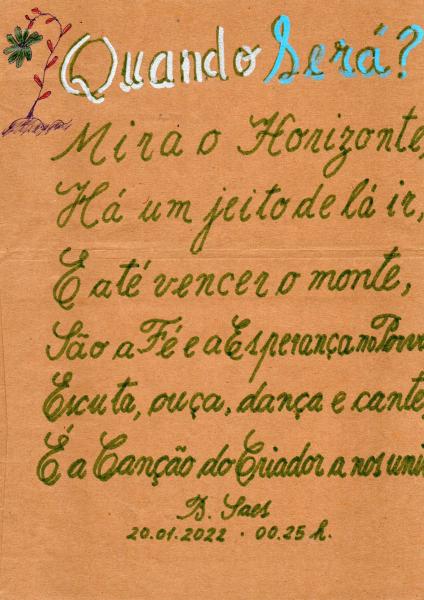 Quando Será?
Mira o Horizonte,
Há um jeito de lá ir,
E até vencer o monte,
São a Fé e a Esperança no
Escuta, ouça, dança e cante,
É a Canção do Criador a nos
B. Saes
20.01.2022 · 00.25 h.